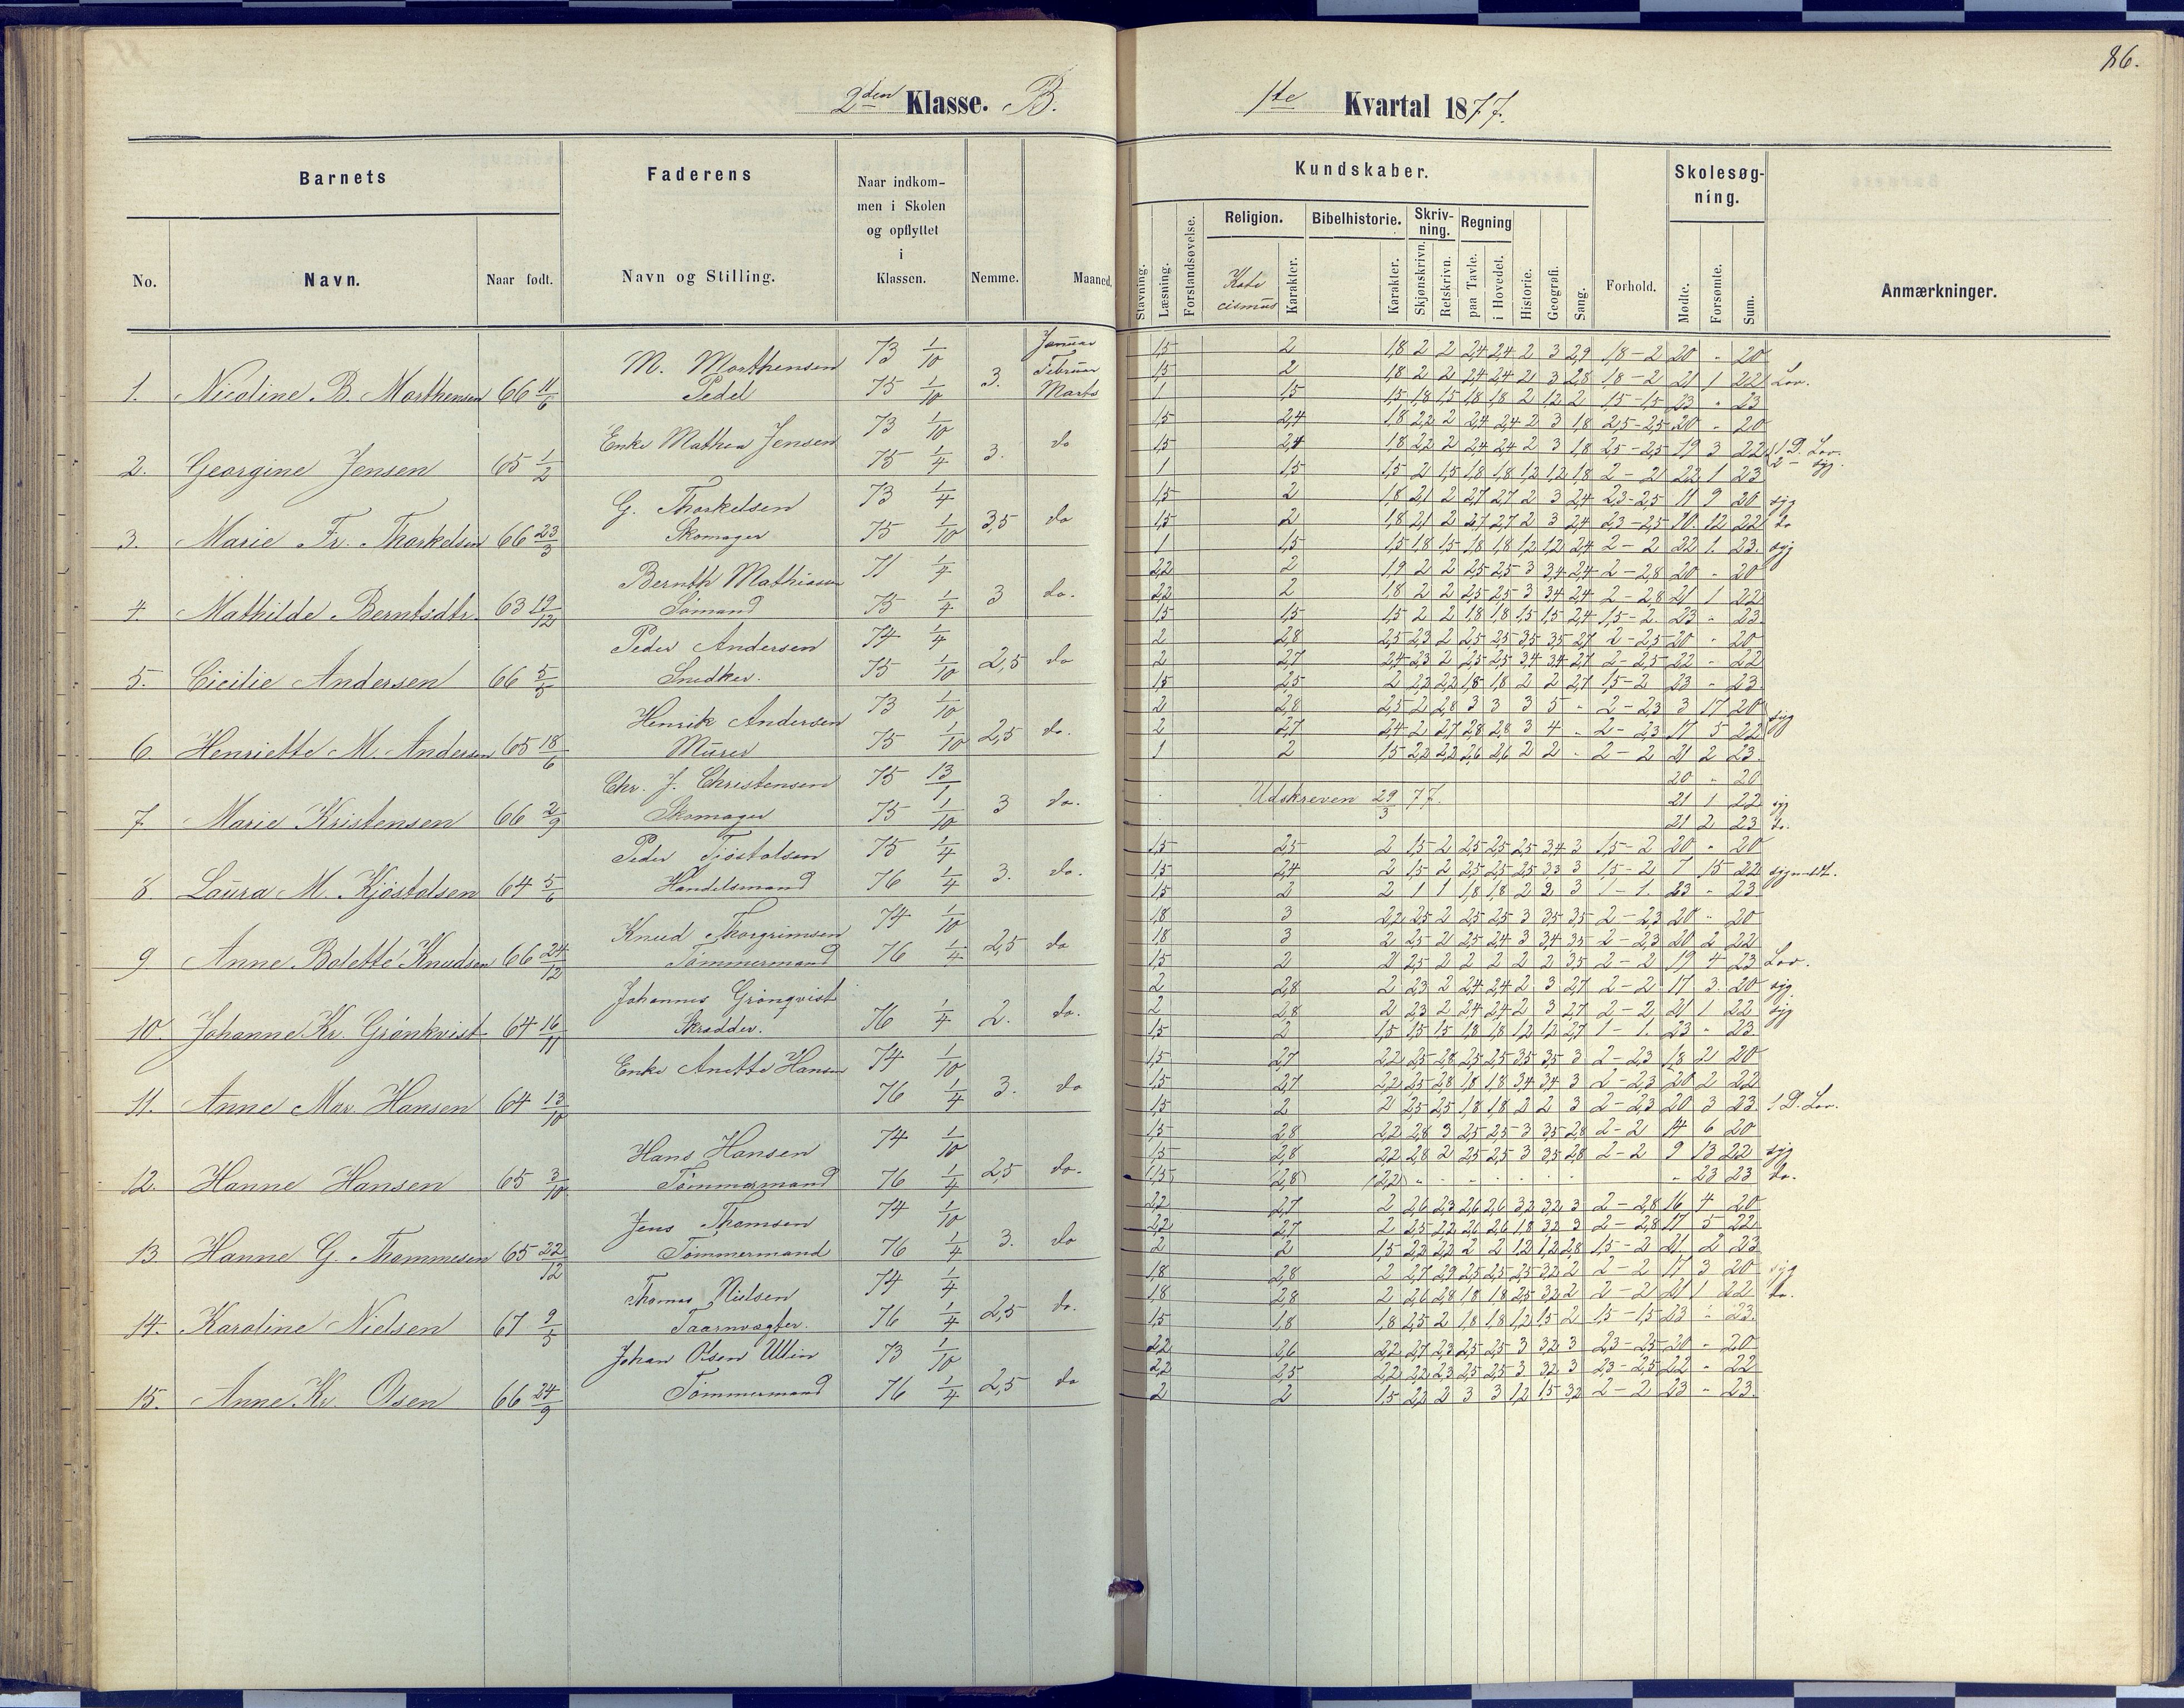 86.
2den Klasse. B.
1te Kvartal 1877.
Barnets
Faderens
Naar indkom-
men i Skolen
og opflyttet
i
Klassen.
Nemme.
Maaned.
No.
Navn.
Naar født.
Navn og Stilling.
Kundskaber.
Stavning.
Læsning.
Forstandsøvelse.
Religion.
Kate
cismus
Karakter.
Bibelhistorie.
Karakter.
Skriv-
ning.
Skjønskrivn.
Retskrivn.
Regning
paa Tavle.
i Hovedet.
Historie.
Geografi.
Sang.
Forhold.
Skolesøg-
ning.
Mødte.
Forsømte.
Sum.
Anmærkninger.
M. Morthensen 73 1/10 Januar 1,5 2 1,8 2 2 2,4 2,4 2 3 2,9 1,8-2 20 " 20
1. Nicoline B. Morthensen 66 11/6 Pedel 75 1/10 3. Februar 1,5 2 1,8 2 2 2,4 2,4 2 3 2,8 1,8-2 21 1 22 Lov.
Marts 1 1,5 1,5 1,8 1,5 1,8 1,8 2 1,2 2 1,5-1,5 23 " 23
Enke Mathea Jensen 73 1/10 1,5 2,4 1,8 2,2 2 2,4 2,4 2 3 1,8 2,5-2,5 20 " 20
2. Georgine Jensen 65 1/2 75 1/4 3. do 1,5 2,4 1,8 2,2 2 2,4 2,4 2 3 1,8 2,5-2,5 19 3 22 1 D. Lov.
2 - syg.
1 1,5 1,5 2 1,5 1,8 1,8 1,2 1,2 1,8 2-2 22 1 23
G. Thorkelsen 73 1/4 1,5 2 1,8 2,1 2 2,7 2,7 2 3 2,4 2,3-2,5 11 9 20 syg
3. Marie Fr. Thorkelsen 66 23/3 Skomager 75 1/10 3,5 do 1,5 2 1,8 2,1 2 2,7 2,7 2 3 2,4 2,3-2,5 10. 12 22 do
1 1,5 1,5 1,8 1,5 1,8 1,8 1,2 1,2 2,4 2-2 22 1. 23. syg
Bernth Mathiasen 71 1/4 2,2 2 1,9 2 2 2,5 2,5 3 3,4 2,4 2-2,8 20 " 20
4. Mathilde Berntsdtr. 63 19/12 Sömand 75 1/4 3 do. 2,2 2 1,8 2 2 2,5 2,5 3 3,4 2,4 2-2,8 21 1 22
1,5 1,5 1,5 2 2 1,8 1,8 1,5 1,5 2,4 1,5-2. 23 " 23.
Peder Andersen 74 1/4 2 2,8 2,5 2,3 2 2,5 2,5 3,5 3,5 2,7 2-2,5 20 " 20
5. Cicilie Andersen 66 5/5 Snedker. 75 1/10 2,5 do 2 2,7 2,4 2,3 2 2,5 2,5 3,4 3,4 2,7 2-2,5 22 " 22
1,5 2,5 2 2,2 2,2 1,8 1,8 2 2 2,7 1,5-2 23 " 23.
Henrik Andersen 73 1/10 2 2,8 2,5 2 2,8 3 3 3 5 " 2-2,3 3 17 20 syg
6. Henriette M. Andersen 65 18/6 Murer 75 1/10 2,5 do. 2 2,7 2,4 2 2,7 2,8 2,8 3 4 " 2-2,3 17 5 22
1 2 1,5 2,2 2,2 2,6 2,6 2 2 - 2-2 21 2 23.
Chr. J. Christensen 75 13/1 20 " 20
7. Marie Kristensen 66 2/9 Skomager 75 1/10 3 do. Udskreven 29/3 77. 21 1 22 syg
21 2 23 do.
Peder Tjöstolsen 75 1/4 1,5 2,5 2 1,5 2 2,5 2,5 2,5 3,4 3 1,5-2 20 " 20
8. Laura M. Kjöstolsen 64 5/6 Handelsmand 76 1/4 3. do. 1,5 2,4 2 1,5 2 2,5 2,5 2,5 3,3 3 1,5-2 7 15 22 sygmeldt.
1,5 2 2 1 1 1,8 1,8 2 2 3 1-1. 23 " 23
Knud Thorgrimsen 74 1/10 1,8 3 2,2 2,5 2 2,5 2,5 3 3,5 3,5 2-2,3 20 " 20
9. Anne Bolette Knudsen 66 24/12 Tömmermand 76 1/4 2,5 do 1,8 3 2 2,5 2 2,5 2,4 3 3,4 3,5 2-2,3 20 2 22
1,5 2 2 2,5 2 2 2 2 2 3,5 2-2 19 4 23 Lov.
Johannes Grönqvist 2 2,8 2 2,3 2 2,4 2,4 2 3 2,7 2-2 17 3. 20 syg.
10. Johanne Kr. Grönkvist 64 16/11 Skrædder. 76 1/4 2. do. 2 2,8 2 2,3 2 2,4 2,4 2 3 2,7 2-2 21 1 22 syg
1,5 2 1,5 1,5 1,5 1,8 1,8 1,2 1,2 2,7 1-1. 23 " 23
Enke Anette Hansen 74 1/10 1,5 2,7 2,2 2,5 2,8 2,5 2,5 3,5 3,5 3 2-2,3 18 2 20
11. Anne Mar. Hansen 64 13/10 76 1/4 3. do 1,5 2,7 2,2 2,5 2,8 1,8 1,8 3,4 3,4 3 2-2,3 20 2 22
1,5 2 2 2,5 2,5 1,8 1,8 2 2 3 2-2,3 20 3 23. 1 D. Lov.
Hans Hansen 74 1/10 1,5 2,8 2,2 2,8 3 2,5 2,5 3 3,5 2,8 2-2 14 6 20
12. Hanne Hansen 65 3/10 Tömmermand 76 1/4 2,5 do. 1,5 2,8 2,2 2,8 2 2,5 2,5 3 3,5 2,8 2-2 9 13 22 syg
(1,5) (2,8) (2,2) " 23 23 do.
Jens Thomsen 74 1/10 2,2 2,7 2 2,6 2,3 2,6 2,6 3,2 3,2 3 2-2,8 16 4 20
13. Hanne G. Thommesen 65 22/12 Tömmermand 76 1/4 3. do 2,2 2,7 2 2,5 2,2 2,6 2,6 1,8 3,2 3 2-2,8 17 5 22
2 2 1,5 2,2 2,2 2 2 1,2 1,2 2,8 1,5-2 21 2 23
Thomas Nielsen 74 1/4 1,8 2,8 2 2,7 2,9 2,5 2,5 2,5 3,2 2 2-2 17 3 20 syg
14. Karoline Nielsen 67 9/5 Taarnvægter. 76 1/4 2,5 do. 1,8 2,8 2 2,6 2,8 1,8 1,8 2,5 3,2 2 2-2 21 1 22 do.
1,5 1,8 1,8 2,5 2 1,8 1,8 1,2 1,5 2 1,5-1,5 23 " 23.
Johan Olsen Ullin 73 1/10 2,2 2,6 2,2 2,7 2,3 2,5 2,5 3 3,2 3 2,3-2,5 20 " 20
15. Anne Kr. Olsen 66 24/9 Tömmermand 76 1/4 2,5 do 2,2 2,5 2,2 2,2 2,3 2,5 2,5 3 3,2 3 2,3-2,5 22 " 22
2 2 1,5 2,2 2 3 3 1,2 1,5 3,2 2-2 23 " 23.